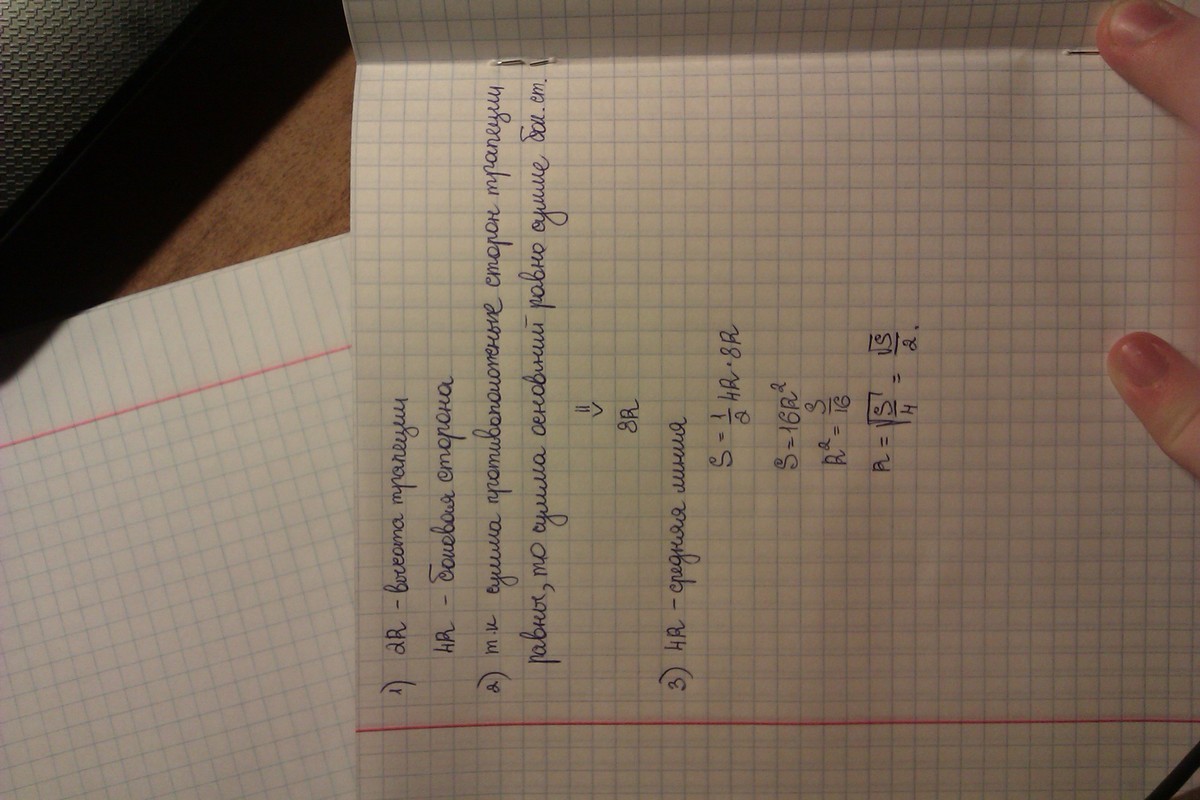 1) 2R - высота трапеции
4R - боковая сторона
2) т.к сумма противоположные сторон трапеции
равны, то сумма оснований равно сумме бок.ст.
=>
8R
3) 4R - средняя линия
S = 1/2 4R·8R
S = 16R²
R² = S/16
R = √(S/4) = √S/2.